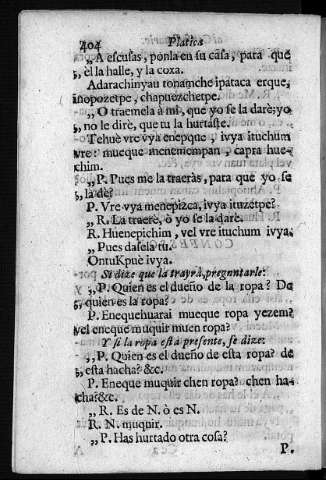 404 Platica
„A escusas, ponla en su casa, para que
„èl la halle, y la coxa.
Adarachinyau tonamche ipataca erque,
inopozetpe, chapuozchetpe.
„O traemela à mi, que yo se la darè: yo
„no le dirè, que tu la hurtaste.
Tehuè vre vya enepque, ivya ituchum
vre: mueque menemiempan, capra hue-
chim.
„P. Pues me la traeràs, para què yo se
„la dè?
P. Vre vya menepizca, ivya ituzetpe?
„R. La traerè, ò yo se la darè.
R. Huenepichim, vel vre ituchum ivya.
„Pues dasela tu.
OntuKpuè ivya.
Si dize que la trayrà, preguntarle:
„P. Quien es el dueño de la ropa? De
„quien es la ropa?
P. Enequehuarai mueque ropa yezem?
vel eneque muquir muen ropa?
Y si la ropa esta presente, se dize:
„P. Quien es el dueño de esta ropa? de
„esta hacha? &c.
P. Eneque muquir chen ropa? chen ha-
cha? &c.
„R. Es de N. ò es N.
R. N. muquir.
„P. Has hurtado otra cosa?
P.